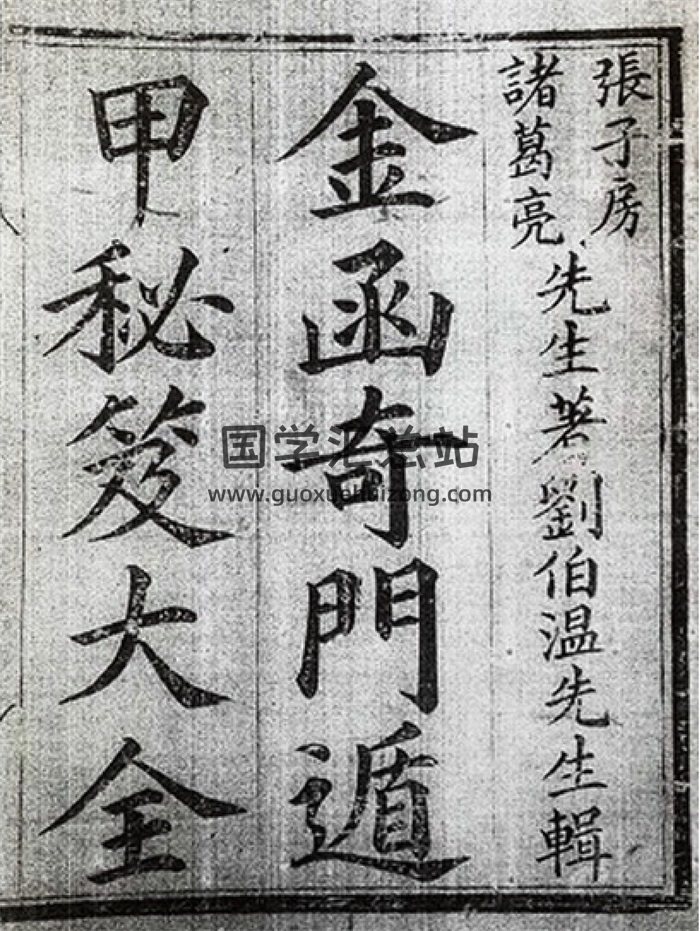 張子房
諸葛亮
先生著劉伯温先生輯
金函奇門遁
甲秘笈大全
国学汇总站
www.guoxuehuizong.com